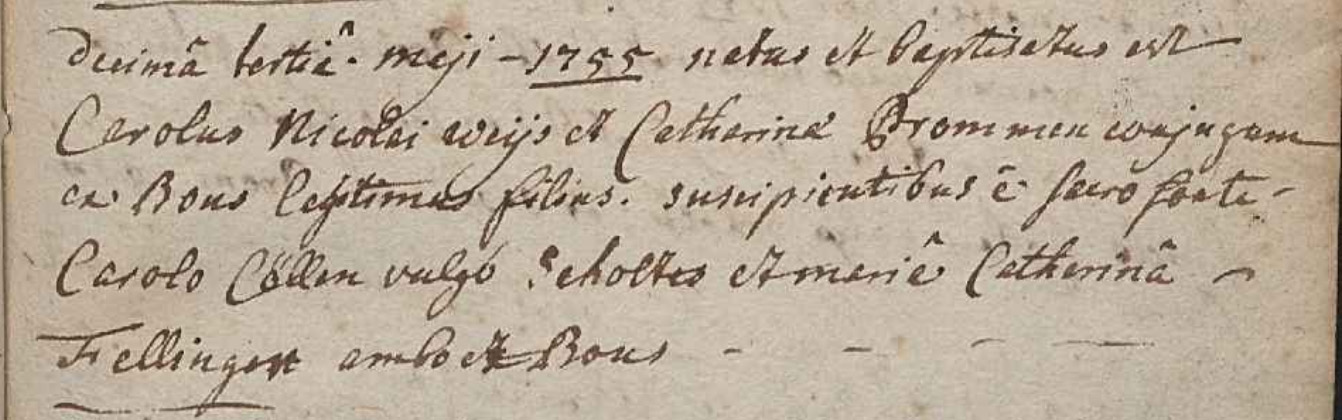 decimâ tertiâ. meji - 1755 natus et baptisatus est
Carolus Nicolai weijs et Catharinæ Brommen conjugum
ex Bous legitimus filius. suscipientibus è sacro fonte -
Carolo Cöllen vulgo Scholtes et mariâ Catharinâ
Fellinger ambo ex Bous - - - -